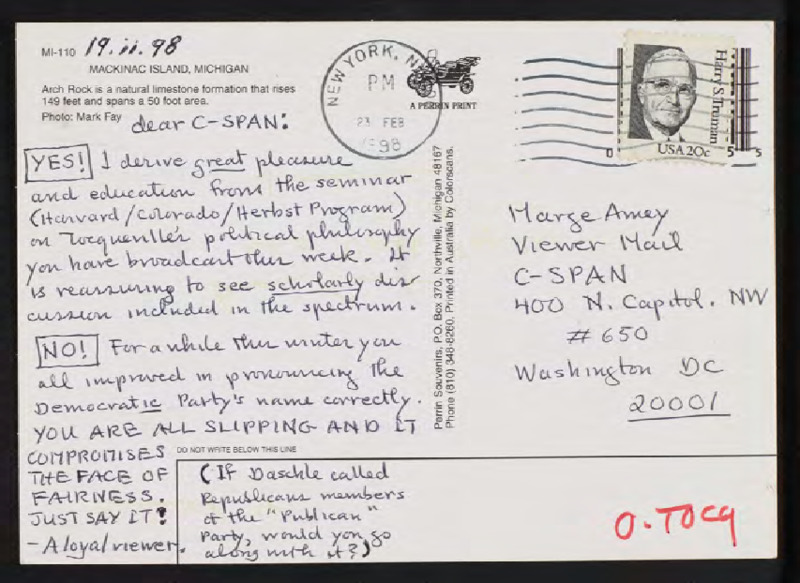 MI-110 19.ii.98
MACKINAC ISLAND, MICHIGAN
Arch Rock is a natural limestone formation that rises
149 feet and spans a 50 foot area.
Photo: Mark Fay
dear C-SPAN:
YES! I derive great pleasure
and education from the seminar
(Harvard/Colorado/Herbst Program)
on Tocqueville's political philosophy
you have broadcast this week. It
is reassuring to see scholarly dis
cussion included in the spectrum.
NO! For a while this winter you
all improved in pronouncing the
Democratic Party's name correctly.
YOU ARE ALL SLIPPING AND IT
COMPROMISES
THE FACE OF
FAIRNESS.
JUST SAY IT!
- A loyal viewer.
DO NOT WRITE BELOW THIS LINE
(If Daschle called
Republicans members
of the "Publican"
Party, would you go
along with it?)
NEW YORK, N
PM
23 FEB
1998
A PERRIN PRINT
Perrin Souvenirs, P.O. Box 370, Northville, Michigan 48167
Phone (810) 348-8260. Printed in Australia by Colorscans.
Harry S. Truman
USA 20c
0 5 5
Marge Amey
Viewer Mail
C-SPAN
400 N. Capitol. NW
# 650
Washington DC
20001
O. TOCQ